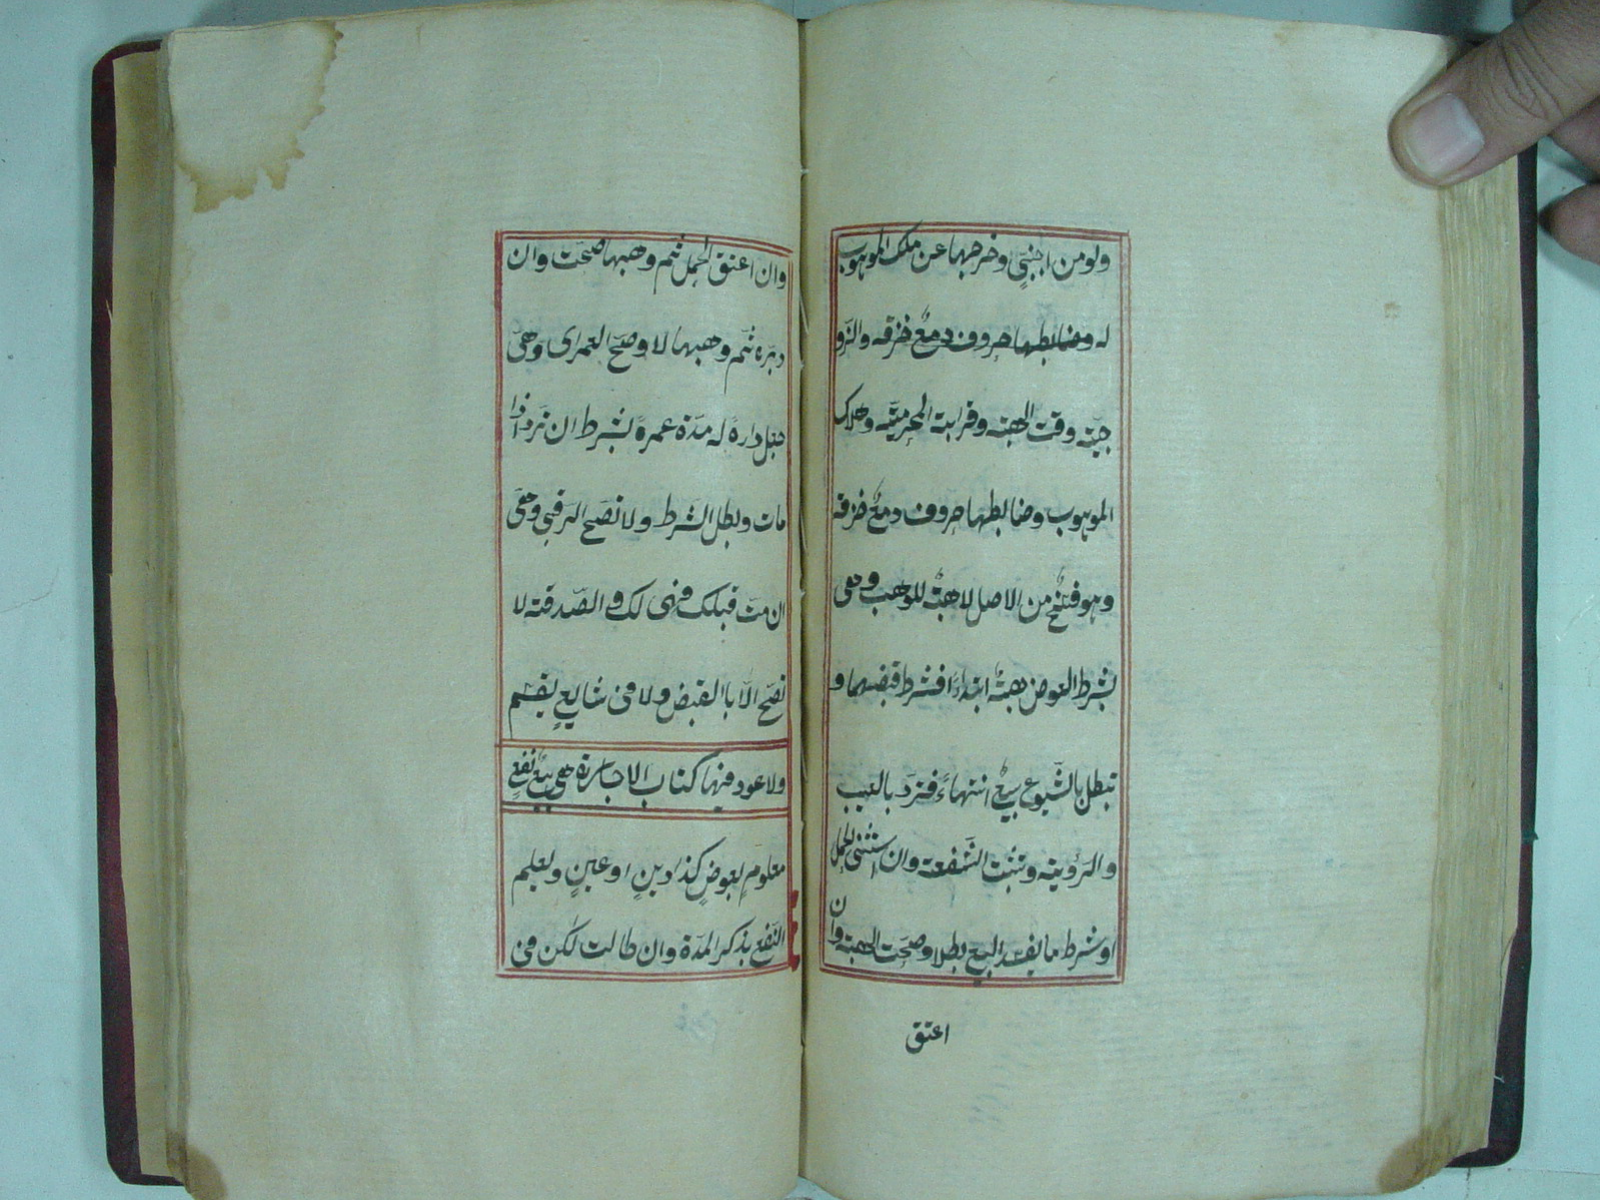 ولو من اجنبيٍّ وخرجها عن ملك الموهوب
له وضابطها حروف دمعٌ خزقه والزو
جيّة وقت الهبة وقرابة المحرميّة وهلاك
الموهوب وضابطها حروف دمعٌ خزقه
وهو فسخٌ من الاصل لا هبةٌ للوهب وهى
بشرط العوض هبةٌ ابتداءً فشرط قبضهما و
تبطل بالشّيوع بيعٌ انتهاءً فتردّ بالعيب
والرؤية وتثبت الشّفعة وان استثنى الحمل
او شرط ما يفسد البيع بطلا وصحّت الهبة وان
اعتق
وان اعتق الحمل ثم وهبها صحّت وان
دبّره ثمّ وهبها لا وصحّ العمرى وهى
جعل داره له مدّة عمره بشرط ان تردّ اذا
مات وبطل الشّرط ولا تصحّ الرقبى وهى
ان متّ قبلك فهى لك والصّدقة لا
تصحّ الّا باالقبض ولا فى شايعٍ يقسم
ولا عود فيها كتاب الاجارة هى بيع نفعٍ
معلومٍ بعوضٍ كذا دينٍ او عينٍ ويعلم
النّفع بذكر المدّة وان طالت لكن فى